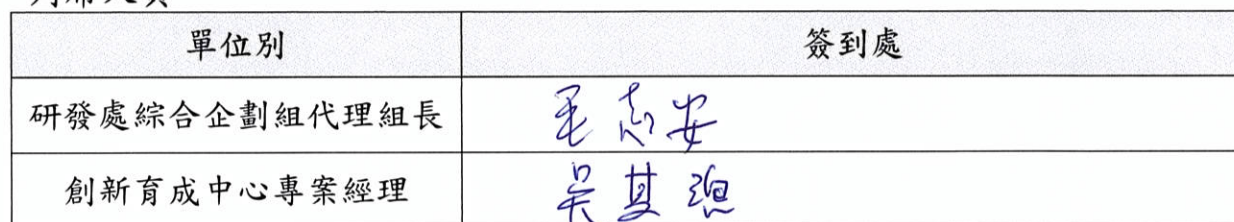 列席人員
單位別 簽到處
研發處綜合企劃組代理組長 毛志安
創新育成中心專案經理 吳其